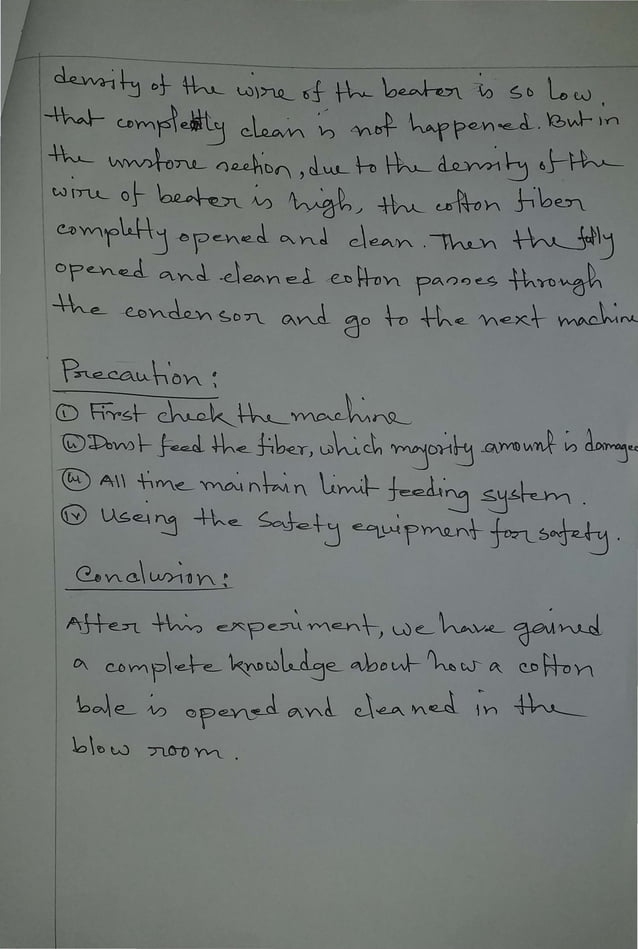 density of the wire of the beater is so low,
that completly clean is not happened. But in
the unstore section, due to the density of the
wire of beater is high, the cotton fiber
completly opened and clean. Then the fully
opened and cleaned cotton passes through
the condensor and go to the next machine
Precaution :
(i) First check the machine
(ii) Don't feed the fiber, which mayority amount is damaged
(iii) All time maintain limit feeding system.
(iv) Useing the Safety equipment for safety.
Conclusion :
After this experiment, we have gained
a complete knowledge about how a cotton
bale is opened and cleaned in the
blow room.